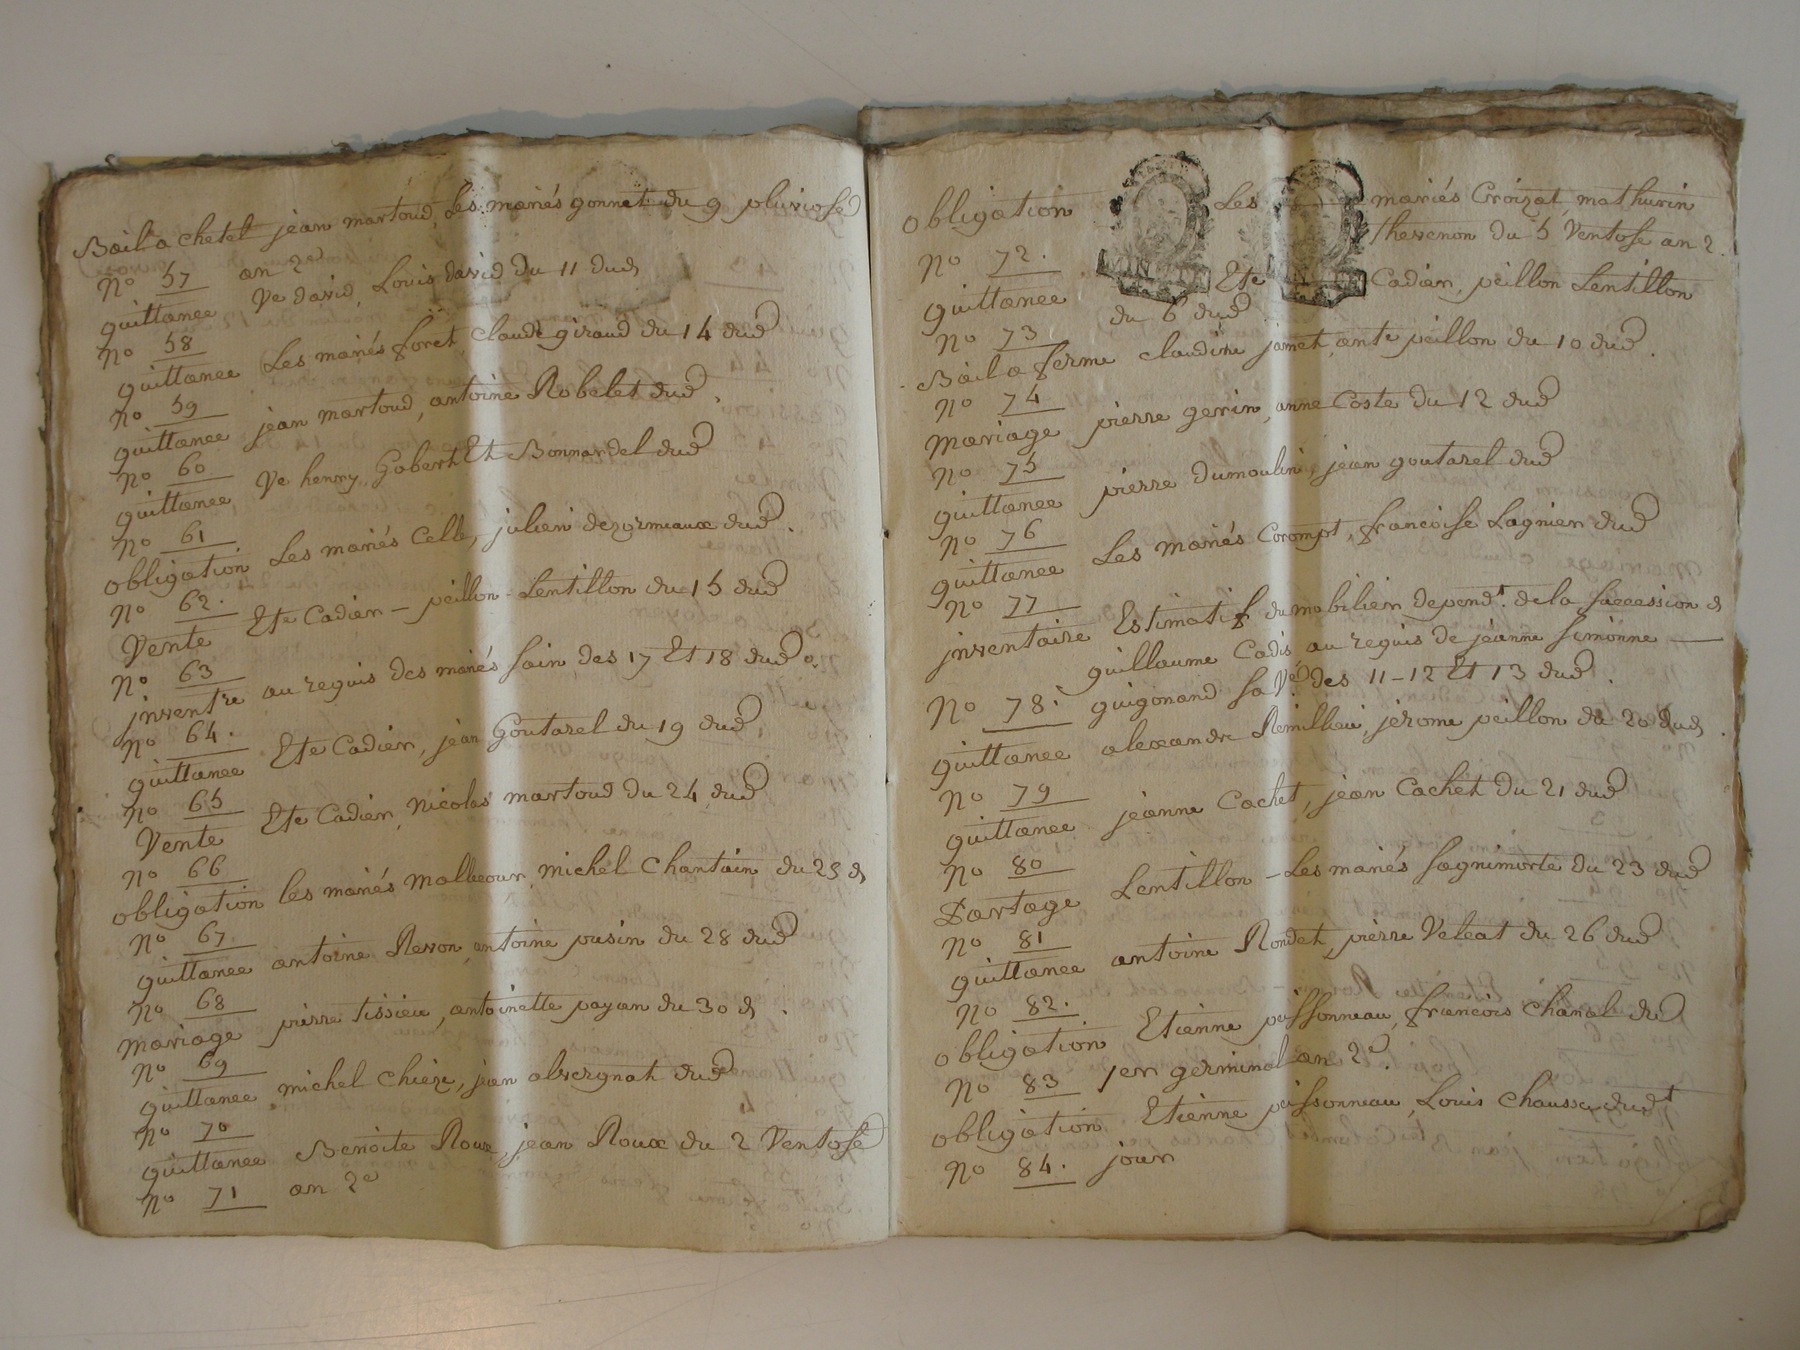 Bail a chetel jean martoud, Les mariés gonnet du 9 pluviose
No 57 an 2e
quittance Ve david, Louis david du 11 dud
No 58
quittance Les mariés foret, claude giraud du 14 dud
No 59
quittance jean martoud, antoine Robelet dud.
No 60
quittance Ve henry, Gobert Et Bonnardel dud
No 61
obligation Les mariés Celle, julien desormeaux dud.
No 62.
Vente Ete Cadier - peillon - Lentillon du 15 dud
No 63
inventre au requis des mariés sain des 17 Et 18 dud.
No 64.
quittance Ete Cadier, jean Goutarel du 19 dud,
No 65
Vente Ete Cadier, nicolas martoud du 24 dud
No 66
obligation les mariés malleour, michel Chantain du 25 d
No 67
quittance antoine Revon, antoine pusin du 28 dud
No 68
mariage pierre tissieu, antoinette payan du 30 d.
No 69
quittance michel chieze, jean alvergnat dud
No 70
quittance Benoite Roux, jean Roux du 2 Ventose
No 71 an 2e
obligation Les mariés Croizat, mathurin
No 72. thevenon du 5 Ventose an 2.
quittance Ete Cadier, peillon Lentillon
No 73 du 6 dud
Bail a ferme claudine jamet, ante peillon du 10 dud.
No 74
mariage pierre gerin, anne Coste du 12 dud
No 75
quittance pierre dumoulin, jean goutarel dud
No 76
quittance Les mariés Corompt, francoise Lagnier dud
No 77
inventaire Estimatif du mobilier dependt. de la succession d
guillaume Cadis au requis de jeanne simonne
No 78. guigonand sa Ve des 11 - 12 Et 13 dud.
quittance alexandre Remillieu, jerome peillon de 20 dud.
No 79
quittance jeanne Cachet, jean Cachet du 21 dud
No 80
Partage Lentillon - Les mariés sagnimorte du 23 dud
No 81
quittance antoine Rondet, pierre Veleat du 26 dud
No 82.
obligation Etienne peissonneau, francois chanal du
No 83 1er germinal an 2e.
obligation Etienne peissonneau, Louis chausse dudt
No 84. jour